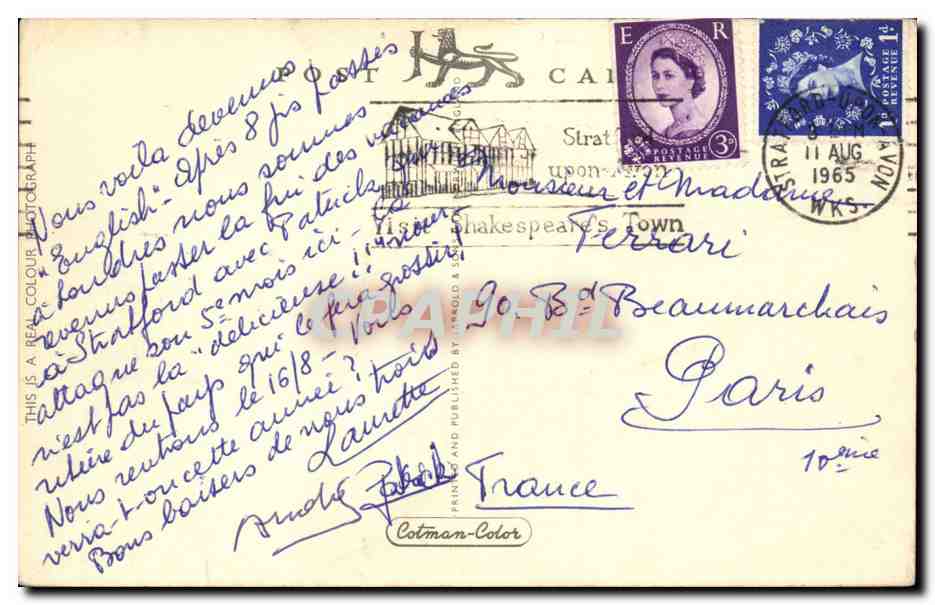 POST CARD
E R
POSTAGE
REVENUE
3D
1d POSTAGE REVENUE 1d
STRATFORD-UPON-AVON
11 AUG
1965
WKS.
Strat
upon-Avon
Visit Shakespeare's Town
Nous voila devenus
"English". Après 8 jrs passés
à Londres nous sommes
revenus passer la fin des vacances
à Stratford avec Patrick qui
attaque son 5e mois ici - La
n'est pas la "délicieuse!!" nour
riture du pays qui le fera grossir!
Nous rentrons le 16/8 - Vous
verra-t-on cette année?
Bons baisers de nous trois
Laurette
André Patrick
Monsieur et Madame
Ferrari
90. Bd Beaumarchais
Paris
10ème
France
THIS IS A REAL COLOUR PHOTOGRAPH
PRINTED AND PUBLISHED BY JARROLD & SONS
Cotman-Color
CPAPHIL